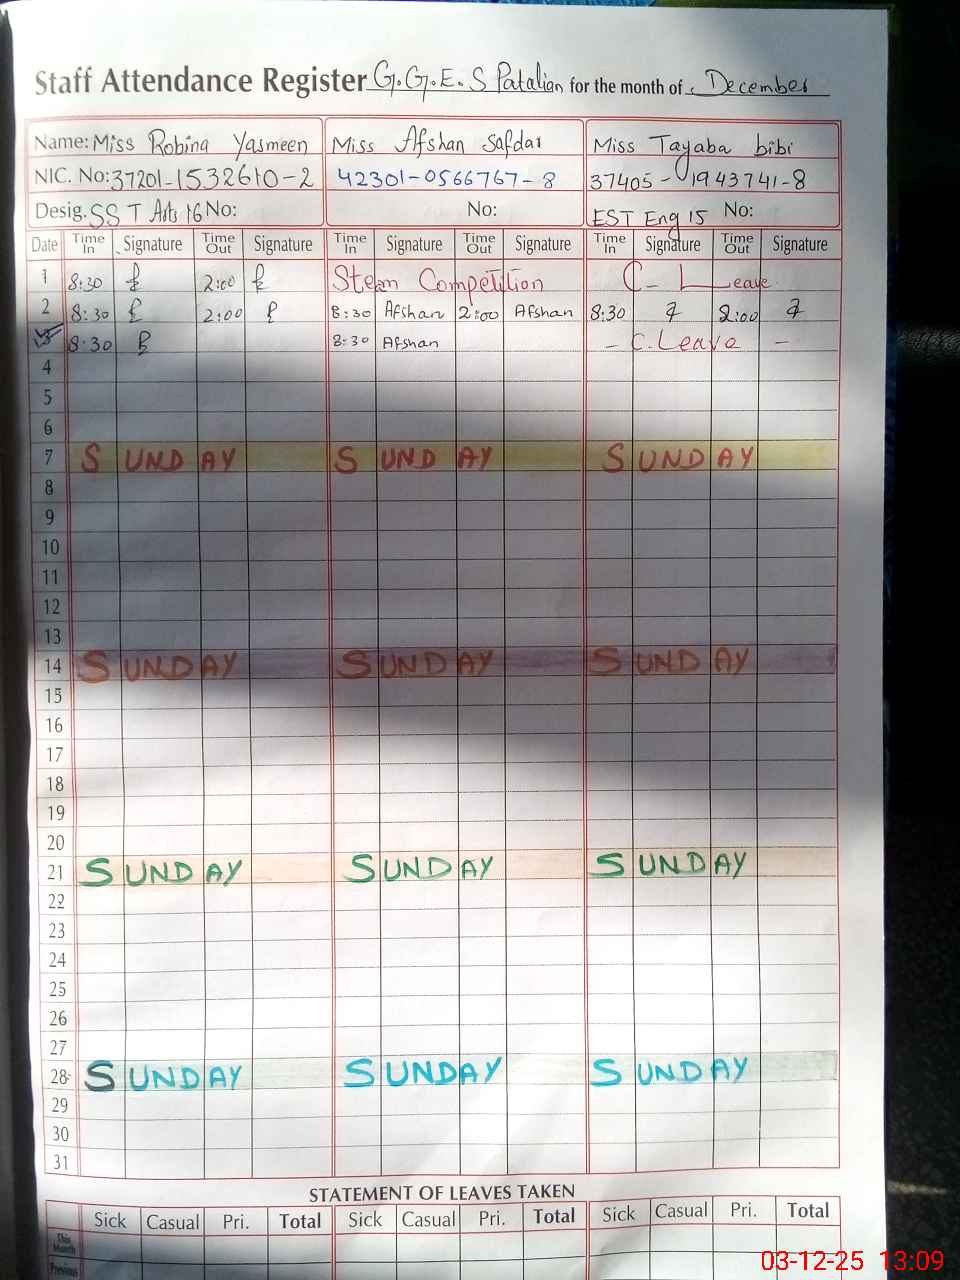 Staff Attendance Register G.G.E.S Patalian for the month of December
Name: Miss Robina Yasmeen Miss Afshan Safdar Miss Tayaba bibi
NIC. No: 37201-1532610-2 42301-0566767-8 37405-1943741-8
Desig. SST Arts 16 No: No: EST Eng 15 No:
Date Time In Signature Time Out Signature Time In Signature Time Out Signature Time In Signature Time Out Signature
1 8:30 2:00 Steam Competition C- Leave
2 8:30 2:00 8:30 Afshan 2:00 Afshan 8:30 2:00
3 8:30 8:30 Afshan - C.Leave -
4
5
6
7 SUNDAY SUNDAY SUNDAY
8
9
10
11
12
13
14 SUNDAY SUNDAY SUNDAY
15
16
17
18
19
20
21 SUNDAY SUNDAY SUNDAY
22
23
24
25
26
27
28 SUNDAY SUNDAY SUNDAY
29
30
31
STATEMENT OF LEAVES TAKEN
Sick Casual Pri. Total Sick Casual Pri. Total Sick Casual Pri. Total
This Month
Previous
03-12-25 13:09